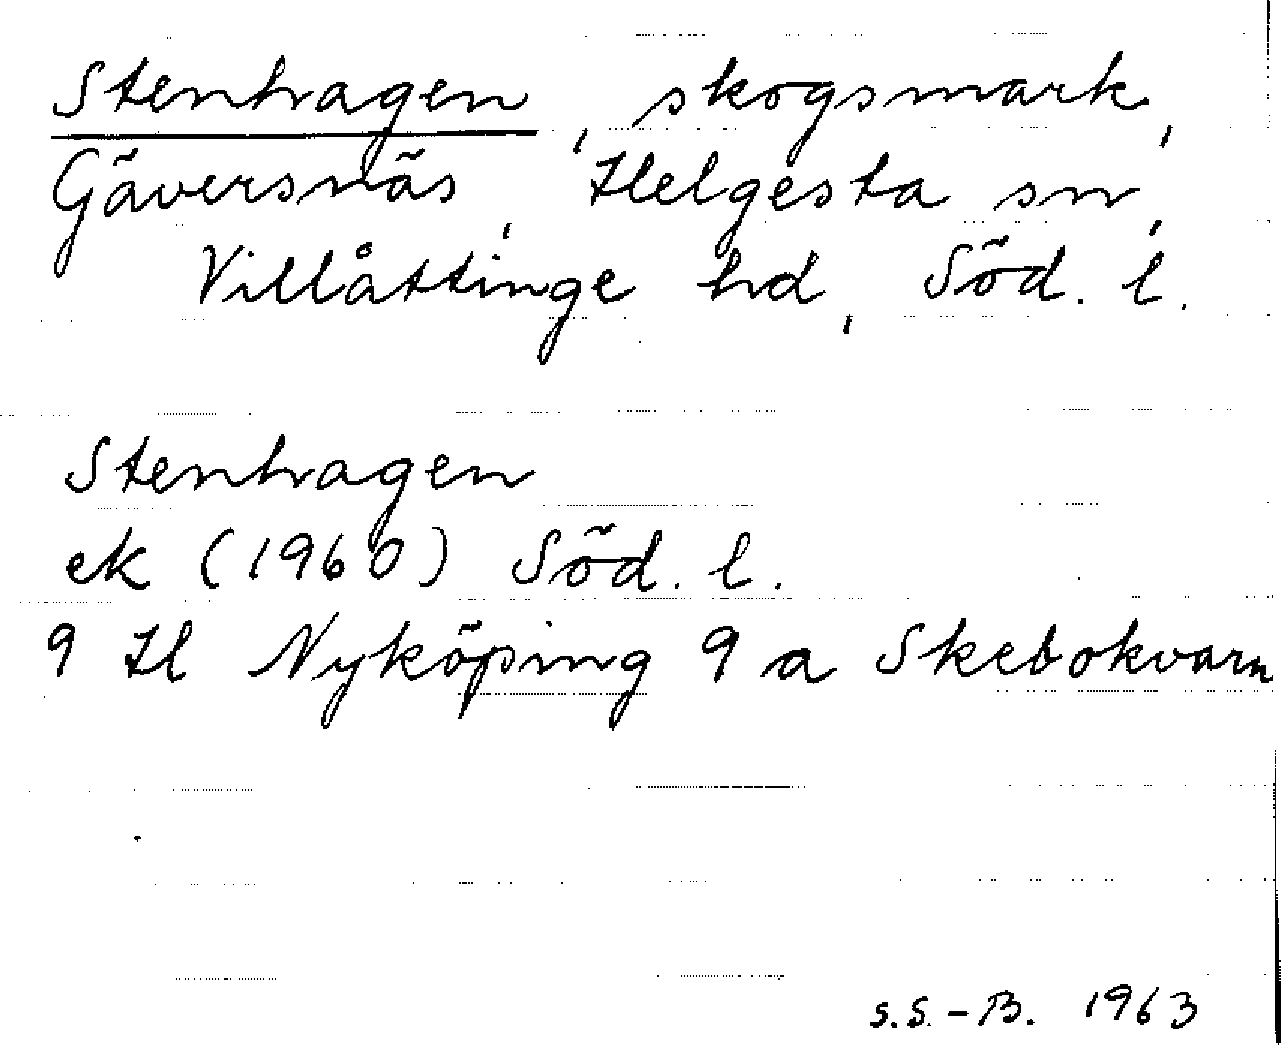 Stenhagen, skogsmark,
Gäversnäs, Helgesta sn,
Villåttinge hd, Söd. l.
Stenhagen
ek (1960) Söd. l.
9 H Nyköping 9 a Skebokvarn
S.S.-B. 1963